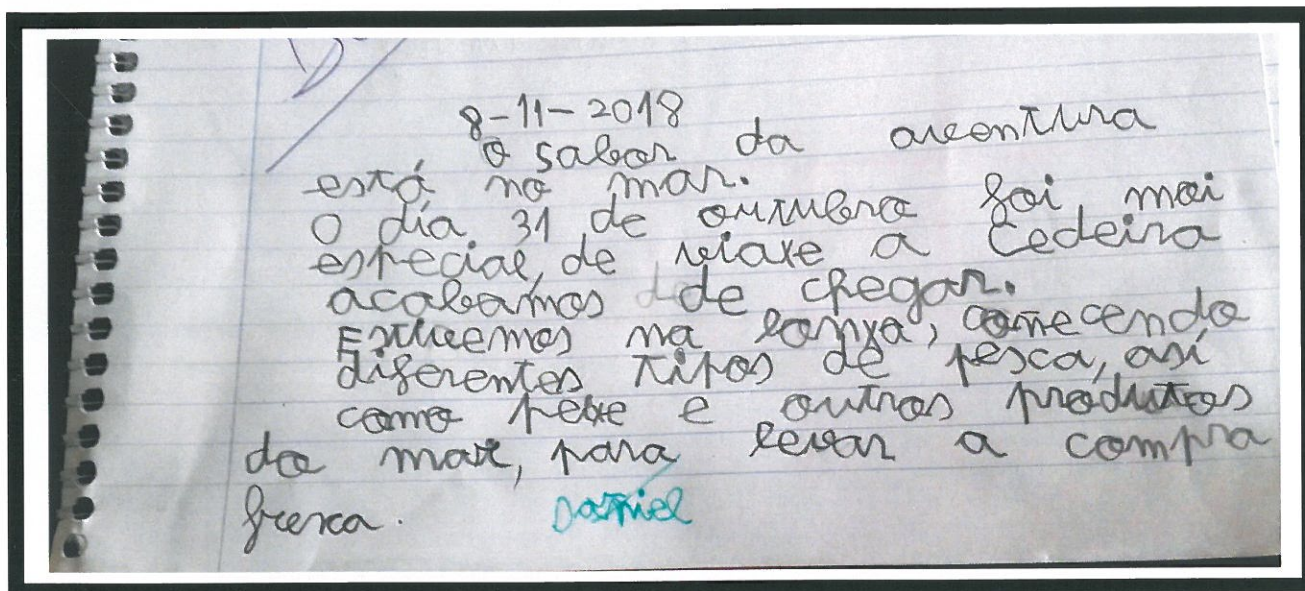 8-11-2018
O sabor da aventura
está no mar.
O día 31 de outubro foi moi
especial, de viaxe a Cedeira
acabamos de chegar.
Estivemos na lonxa, coñecendo
diferentes tipos de pesca, así
como peixe e outros produtos
do mar, para levar a compra
fresca. Daniel